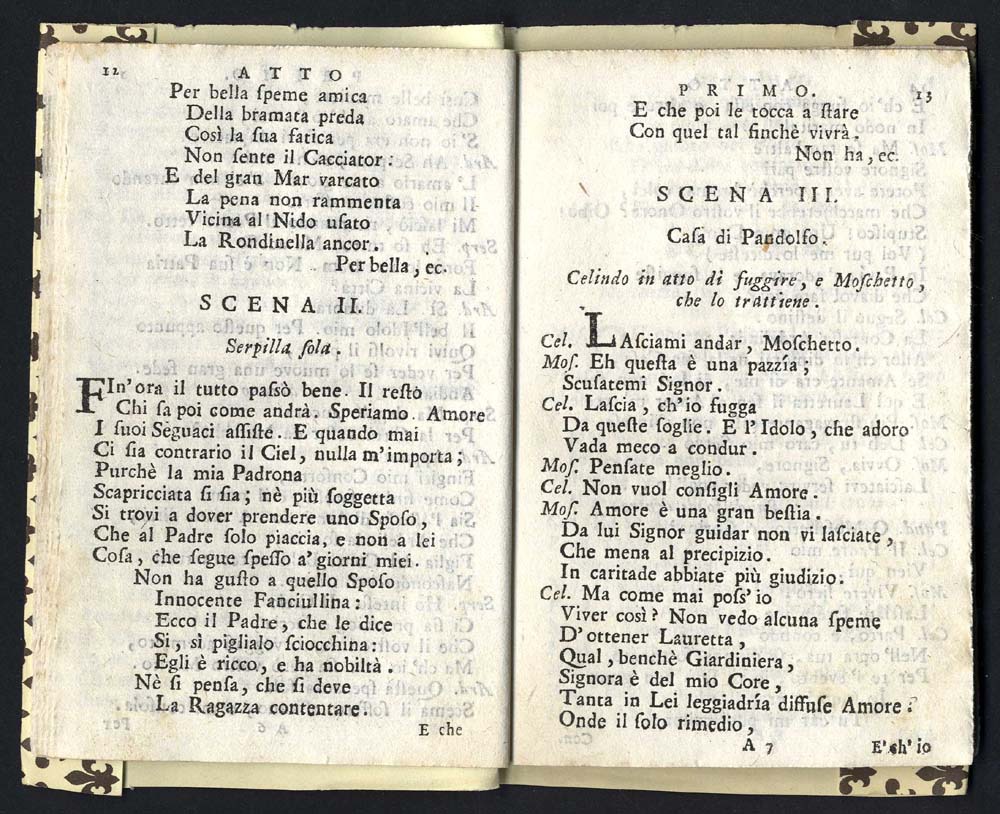 12 ATTO
Per bella ſpeme amica
Della bramata preda
Così la ſua fatica
Non ſente il Cacciator:
E del gran Mar varcato
La pena non rammenta
Vicina al Nido uſato
La Rondinella ancor.
Per bella, ec.
SCENA II.
Serpilla ſola.
FIn'ora il tutto paſsò bene. Il reſto
Chi ſa poi come andrà. Speriamo. Amore
I ſuoi Seguaci aſſiſte. E quando mai
Ci ſia contrario il Ciel, nulla m'importa;
Purchè la mia Padrona
Scapricciata ſi ſia; nè più ſoggetta
Si trovi a dover prendere uno Spoſo,
Che al Padre ſolo piaccia, e non a lei
Coſa, che ſegue ſpeſſo a' giorni miei.
Non ha guſto a quello Spoſo
Innocente Fanciullina:
Ecco il Padre, che le dice
Si, sì piglialo ſciocchina:
Egli è ricco, e ha nobiltà.
Nè ſi penſa, che ſi deve
La Ragazza contentare.
E che
PRIMO. 13
E che poi le tocca a ſtare
Con quel tal finchè vivrà.
Non ha, ec.
SCENA III.
Caſa di Pandolfo.
Celindo in atto di fuggire, e Moſchetto,
che lo trattiene.
Cel. LAſciami andar, Moſchetto.
Moſ. Eh queſta è una pazzia;
Scuſatemi Signor.
Cel. Laſcia, ch'io fugga
Da queſte ſoglie. E l'Idolo, che adoro
Vada meco a condur.
Moſ. Penſate meglio.
Cel. Non vuol conſigli Amore.
Moſ. Amore è una gran beſtia.
Da lui Signor guidar non vi laſciate,
Che mena al precipizio.
In caritade abbiate più giudizio.
Cel. Ma come mai poſs'io
Viver così? Non vedo alcuna ſpeme
D'ottener Lauretta,
Qual, benchè Giardiniera,
Signora è del mio Core,
Tanta in Lei leggiadrìa diffuſe Amore.
Onde il ſolo rimedio,
A 7 E' ch'io